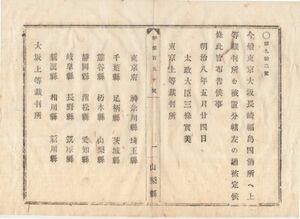 〇第九十二號
今般東京大坂長崎福島四個所ヘ上
等裁判所ヲ被置分轄左ノ通被定候
條此旨布告候事
明治八年五月廿四日
太政大臣三條實美
東京上等裁判所
東京府 神奈川縣 埼玉縣
千葉縣 足柄縣
熊谷縣 栃木縣 山梨縣
靜岡縣 濱松縣 愛知縣
岐阜縣 長野縣 筑摩縣
新潟縣 相川縣 新川縣
大坂上等裁判所
山梨縣